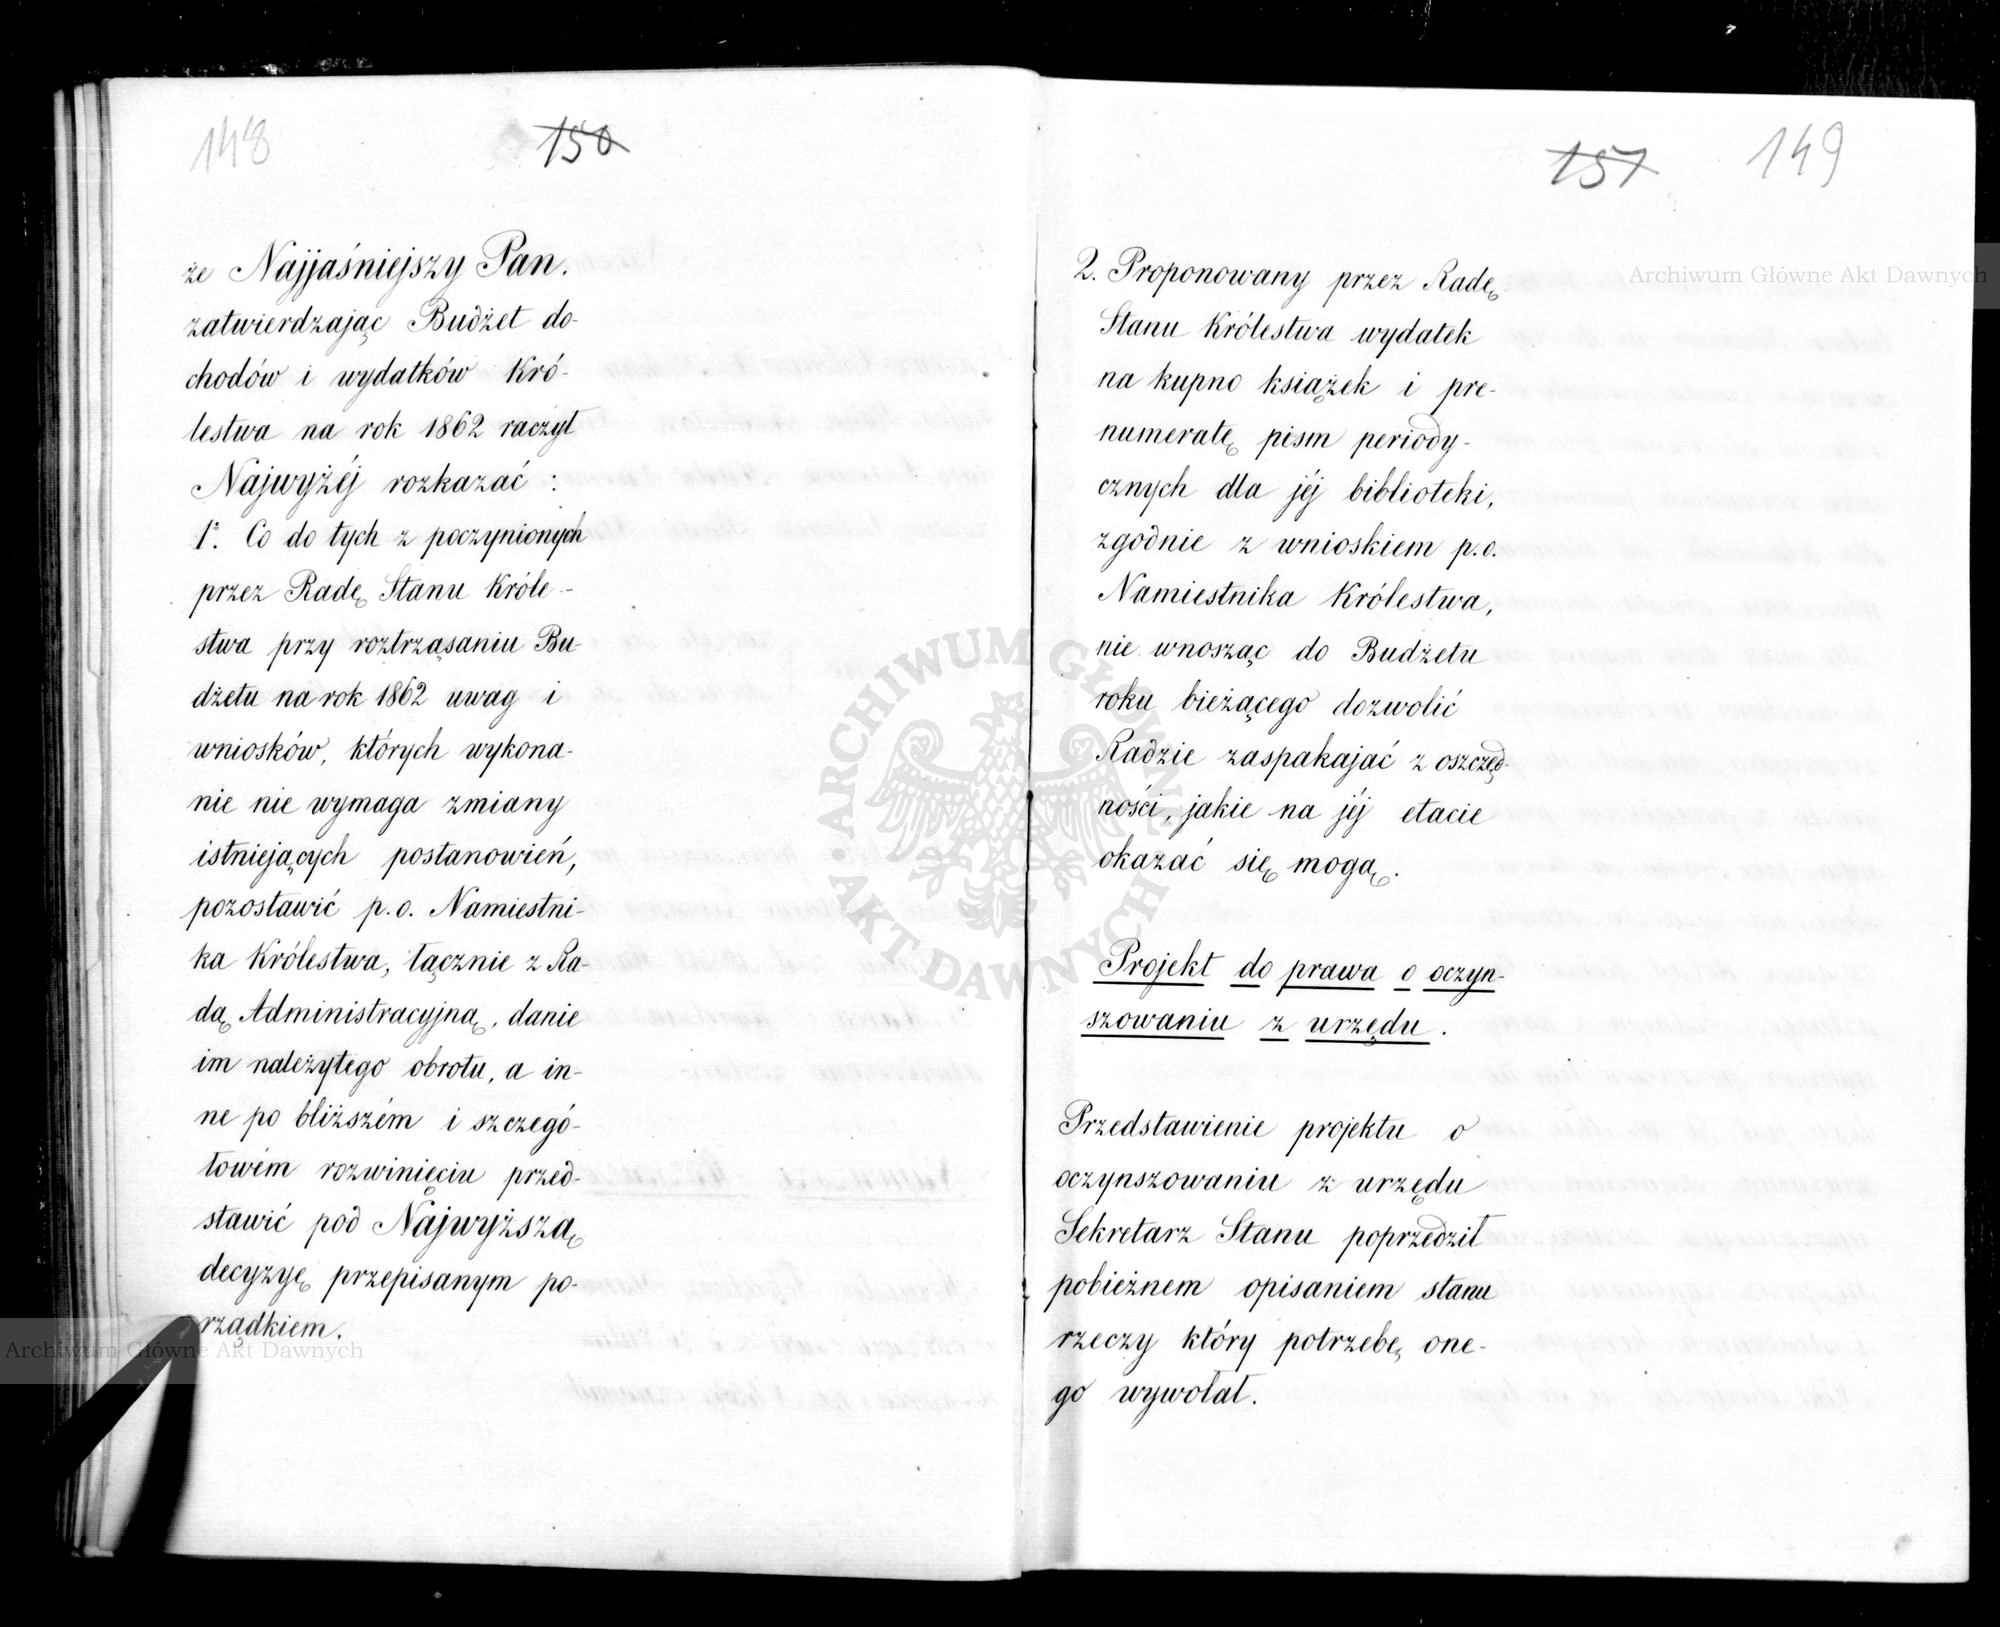 148
150
że Najjaśniejszy Pan.
zatwierdzając Budżet do-
chodów i wydatków Kró-
lestwa na rok 1862 raczył
Najwyżéj rozkazać :
1°. Co do tych z poczynionych
przez Radę Stanu Króle-
stwa przy roztrząsaniu Bu-
dżetu na rok 1862 uwag i
wniosków, których wykona-
nie nie wymaga zmiany
istniejących postanowień,
pozostawić p. o. Namiestni-
ka Królestwa, łącznie z Ra-
dą Administracyjną, danie
im należytego obrotu, a in-
ne po bliższém i szczegó-
łowém rozwinięciu przed-
stawić pod Najwyższą
decyzyę przepisanym po-
rządkiem.
151
149
2. Proponowany przez Radę
Stanu Królestwa wydatek
na kupno książek i pre-
numeratę pism peryody-
cznych dla jéj biblioteki,
zgodnie z wnioskiem p.o.
Namiestnika Królestwa,
nie wnosząc do Budżetu
roku bieżącego dozwolić
Radzie zaspakajać z oszczęd-
ności, jakie na jéj etacie
okazać się mogą.
Projekt do prawa o oczyn-
szowaniu z urzędu.
Przedstawienie projektu o
oczynszowaniu z urzędu
Sekretarz Stanu poprzedził
pobieżnem opisaniem stanu
rzeczy który potrzebę one-
go wywołał.
Archiwum Główne Akt Dawnych
ARCHIWUM GŁÓWNE
AKT DAWNYCH
Archiwum Główne Akt Dawnych